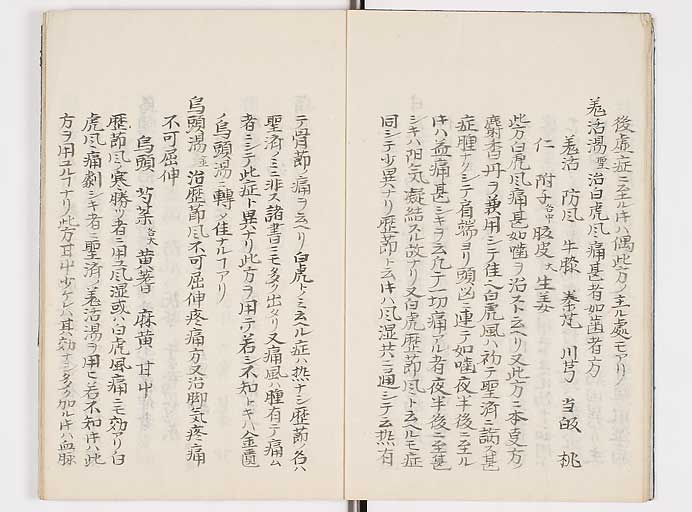 後虚症ニ至ルキハ偶此方ノ主ル處モアリ
羗活湯 聖 治白虎风痛甚者如歯者方
羗活 防风 牛膝 秦芃 川芎 当皈 桃
仁 附子 各中 豚皮 大 生姜
此方白虎风痛甚如噛ヲ治スト云ヘリ又此方ニ本麦方ノ
麝香丹ヲ兼用シテ佳ヘ白虎風ハ初テ聖済ニ載ス甚
症腫ナクシテ肩端ヨリ頭ニ連テ如噛夜半後ニ至ル
キハ益痛甚シキヲ云凢テ一切痛アル者夜半後ニ至甚
シキハ阳気凝結スル故ナリ又白虎歴節风ト云ヘルモ症
同シテ少異ナリ歴節ト云キハ风湿共ニ通シテ云热有
テ骨節ノ痛ヲ云ヘリ白虎トノミ云ヘル症ハ热ナシ歴節ノ名ハ
聖済ノミニ非ス諸書ニモ多ク出タリ又痛風ハ腫有テ痛ム
者ニシテ此症ト異ナリ此方ヲ用テ若シ不知トキハ金匱
ノ烏頭湯ニ轉メ佳ナルコアリ
烏頭湯 治歴節风不可屈伸疼痛方又治脚気疼痛
不可屈伸
烏頭 芍薬 各大 黄耆 麻黄 甘中
歴節风ノ寒勝ツ者ニ用ユ风湿或ハ白虎風痛ニモ効アリ白
虎风ノ痛劇シキ者ニ聖済ノ羗活湯ヲ用テ若不知キハ此
方ヲ用ユルコナリ此方甘中少ケレハ其効ナシ多ク加ルキハ血脉